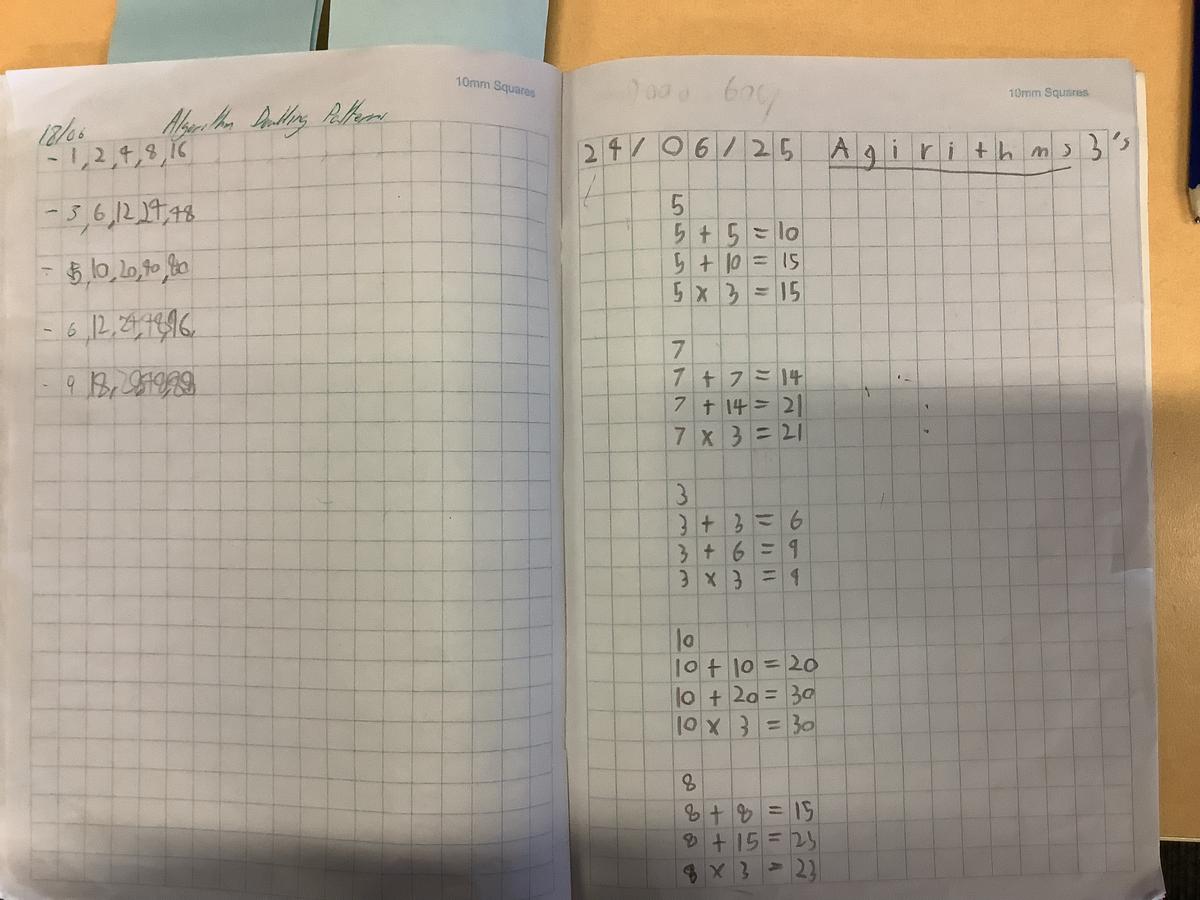 10mm Squares
18/06 Algorithm Doubling Patterns
- 1, 2, 4, 8, 16
- 3, 6, 12, 24, 48
- 5, 10, 20, 40, 80
- 6, 12, 24, 48, 96
- 9, 18,
10mm Squares
24/06/25 Agirithms 3's
5
5 + 5 = 10
5 + 10 = 15
5 x 3 = 15
7
7 + 7 = 14
7 + 14 = 21
7 x 3 = 21
3
3 + 3 = 6
3 + 6 = 9
3 x 3 = 9
10
10 + 10 = 20
10 + 20 = 30
10 x 3 = 30
8
8 + 8 = 15
8 + 15 = 23
8 x 3 = 23